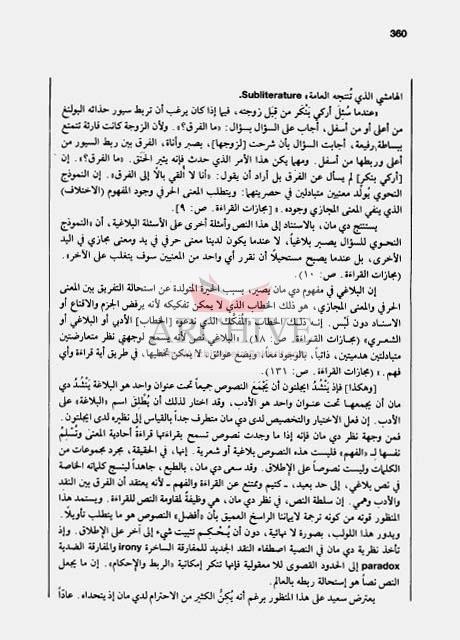 360
الهامشي الذي تُنتجه العامة» Subliterature.
«عندما سُئِلَ آركي بَنْكَر من قِبَل زوجته، فيما إذا كان يرغب أن تربط سيور حذائه البولنغ
من أعلى أو من أسفل، أجاب على السؤال بسؤال: «ما الفرق؟». ولأن الزوجة كانت قارئة تتمتع
ببساطة رفيعة، أجابت السؤال بأن شرحت [لزوجها]، بصبر وأناة، الفرق بين ربط السيور من
أعلى وربطها من أسفل. ومهما يكن هذا الأمر الذي حدث فإنه يثير الحنق. «ما الفرق؟». إن
[آركي بنكر] لم يسأل عن الفرق بل أراد أن يقول: «أنا لا ألقي بالاً إلى الفرق». إن النموذج
النحوي يُولّد معنيين متبادلين في حصريتهما: ويتطلب المعنى الحرفي وجود المفهوم (الاختلاف)
الذي ينفي المعنى المجازي وجوده.» [مجازات القراءة. ص: ٩].
يستنتج دي مان، بالاستناد إلى هذا النص وأمثلة أخرى على الأسئلة البلاغية، أن «النموذج
النحوي للسؤال يصبر بلاغياً، لا عندما يكون لدينا معنى حرفي في يد ومعنى مجازي في اليد
الأخرى، بل عندما يصبح مستحيلاً أن نقرر أي واحد من المعنيين سوف يتغلب على الآخر».
(مجازات القراءة. ص: ١٠).
إن البلاغي في مفهوم دي مان يصير، بسبب الحيرة المتولدة عن استحالة التفريق بين المعنى
الحرفي والمعنى المجازي، هو ذلك الخطاب الذي لا يمكن تفكيكه لأنه يرفض الجزم والاقناع أو
الاسناد دون لَبْس. إنه ذلك الخطاب المُفكّك الذي ندعوه [الخطاب] الأدبي أو البلاغي أو
الشعري» (مجازات القراءة. ص: ١٨). «البلاغي نص لأنه يسمح لوجهتي نظر متعارضتين
متبادلتين هدميتين، ذاتياً، بالوجود معاً، ويضع عوائق، لا يمكن تخطيها، في طريق أية قراءة وأي
فهم.» (مجازات القراءة. ص: ١٣١).
[وهكذا] فإذ يَنْشُدُ ايجلتون أن يَجْمَعَ النصوص جميعاً تحت عنوان واحد هو البلاغة يَنْشُدُ دي
مان أن يجمعها تحت عنوان واحد هو الأدب، وقد اختار لذلك أن يُطلِقَ اسم «البلاغة» على
الأدب. إن فعل الاختيار والتخصيص لدى دي مان متطرف جداً بالقياس إلى نظيره لدى ايجلتون.
فمن وجهة نظر دي مان فإنه إذا ما وجدت نصوص تسمح بقراءتها قراءةً أحادية المعنى وتُسْلِمُ
نفسها لِـ «الفهم» فليست هذه النصوص بلاغية أو شعرية. إنها، في الحقيقة، مجرد مجموعات من
الكلمات وليست نصوصاً على الإطلاق. وقد سعى دي مان، بالطبع، جاهداً لينسج كلماته الخاصة
في نص بلاغي، إلى حد بعيد، ــ كتيم وممتنع عن القراءة والفهم ــ لأنه يعتقد أن الفرق بين النقد
والأدب وهمي. إن سلطة النص، في نظر دي مان، هي وظيفةٌ لمقاومة النص للقراءة. ويستمد هذا
المنظور قوته من كونه ترجمة لايماننا الراسخ العميق بأن «أفضل» النصوص هو ما يتطلب تأويلاً.
ويدور هذا اللولب، بصورة لا نهائية، دون أن يُـحْـكِـم تثبيت شيء إلى آخر على الإطلاق. وإذ
تأخذ نظرية دي مان في النصية اصطفاء النقد الجديد للمفارقة الساخرة irony والمفارقة الضدية
paradox إلى الحدود القصوى للا معقولية فإنها تنكر إمكانية «الربط والإحكام». إن ما يجعل
النص نصاً هو إستحالة ربطه بالعالم.
يعترض سعيد على هذا المنظور برغم أنه يُكِنُّ الكثير من الاحترام لدي مان إذ يتحداه. عادّاً
ARCHIVE